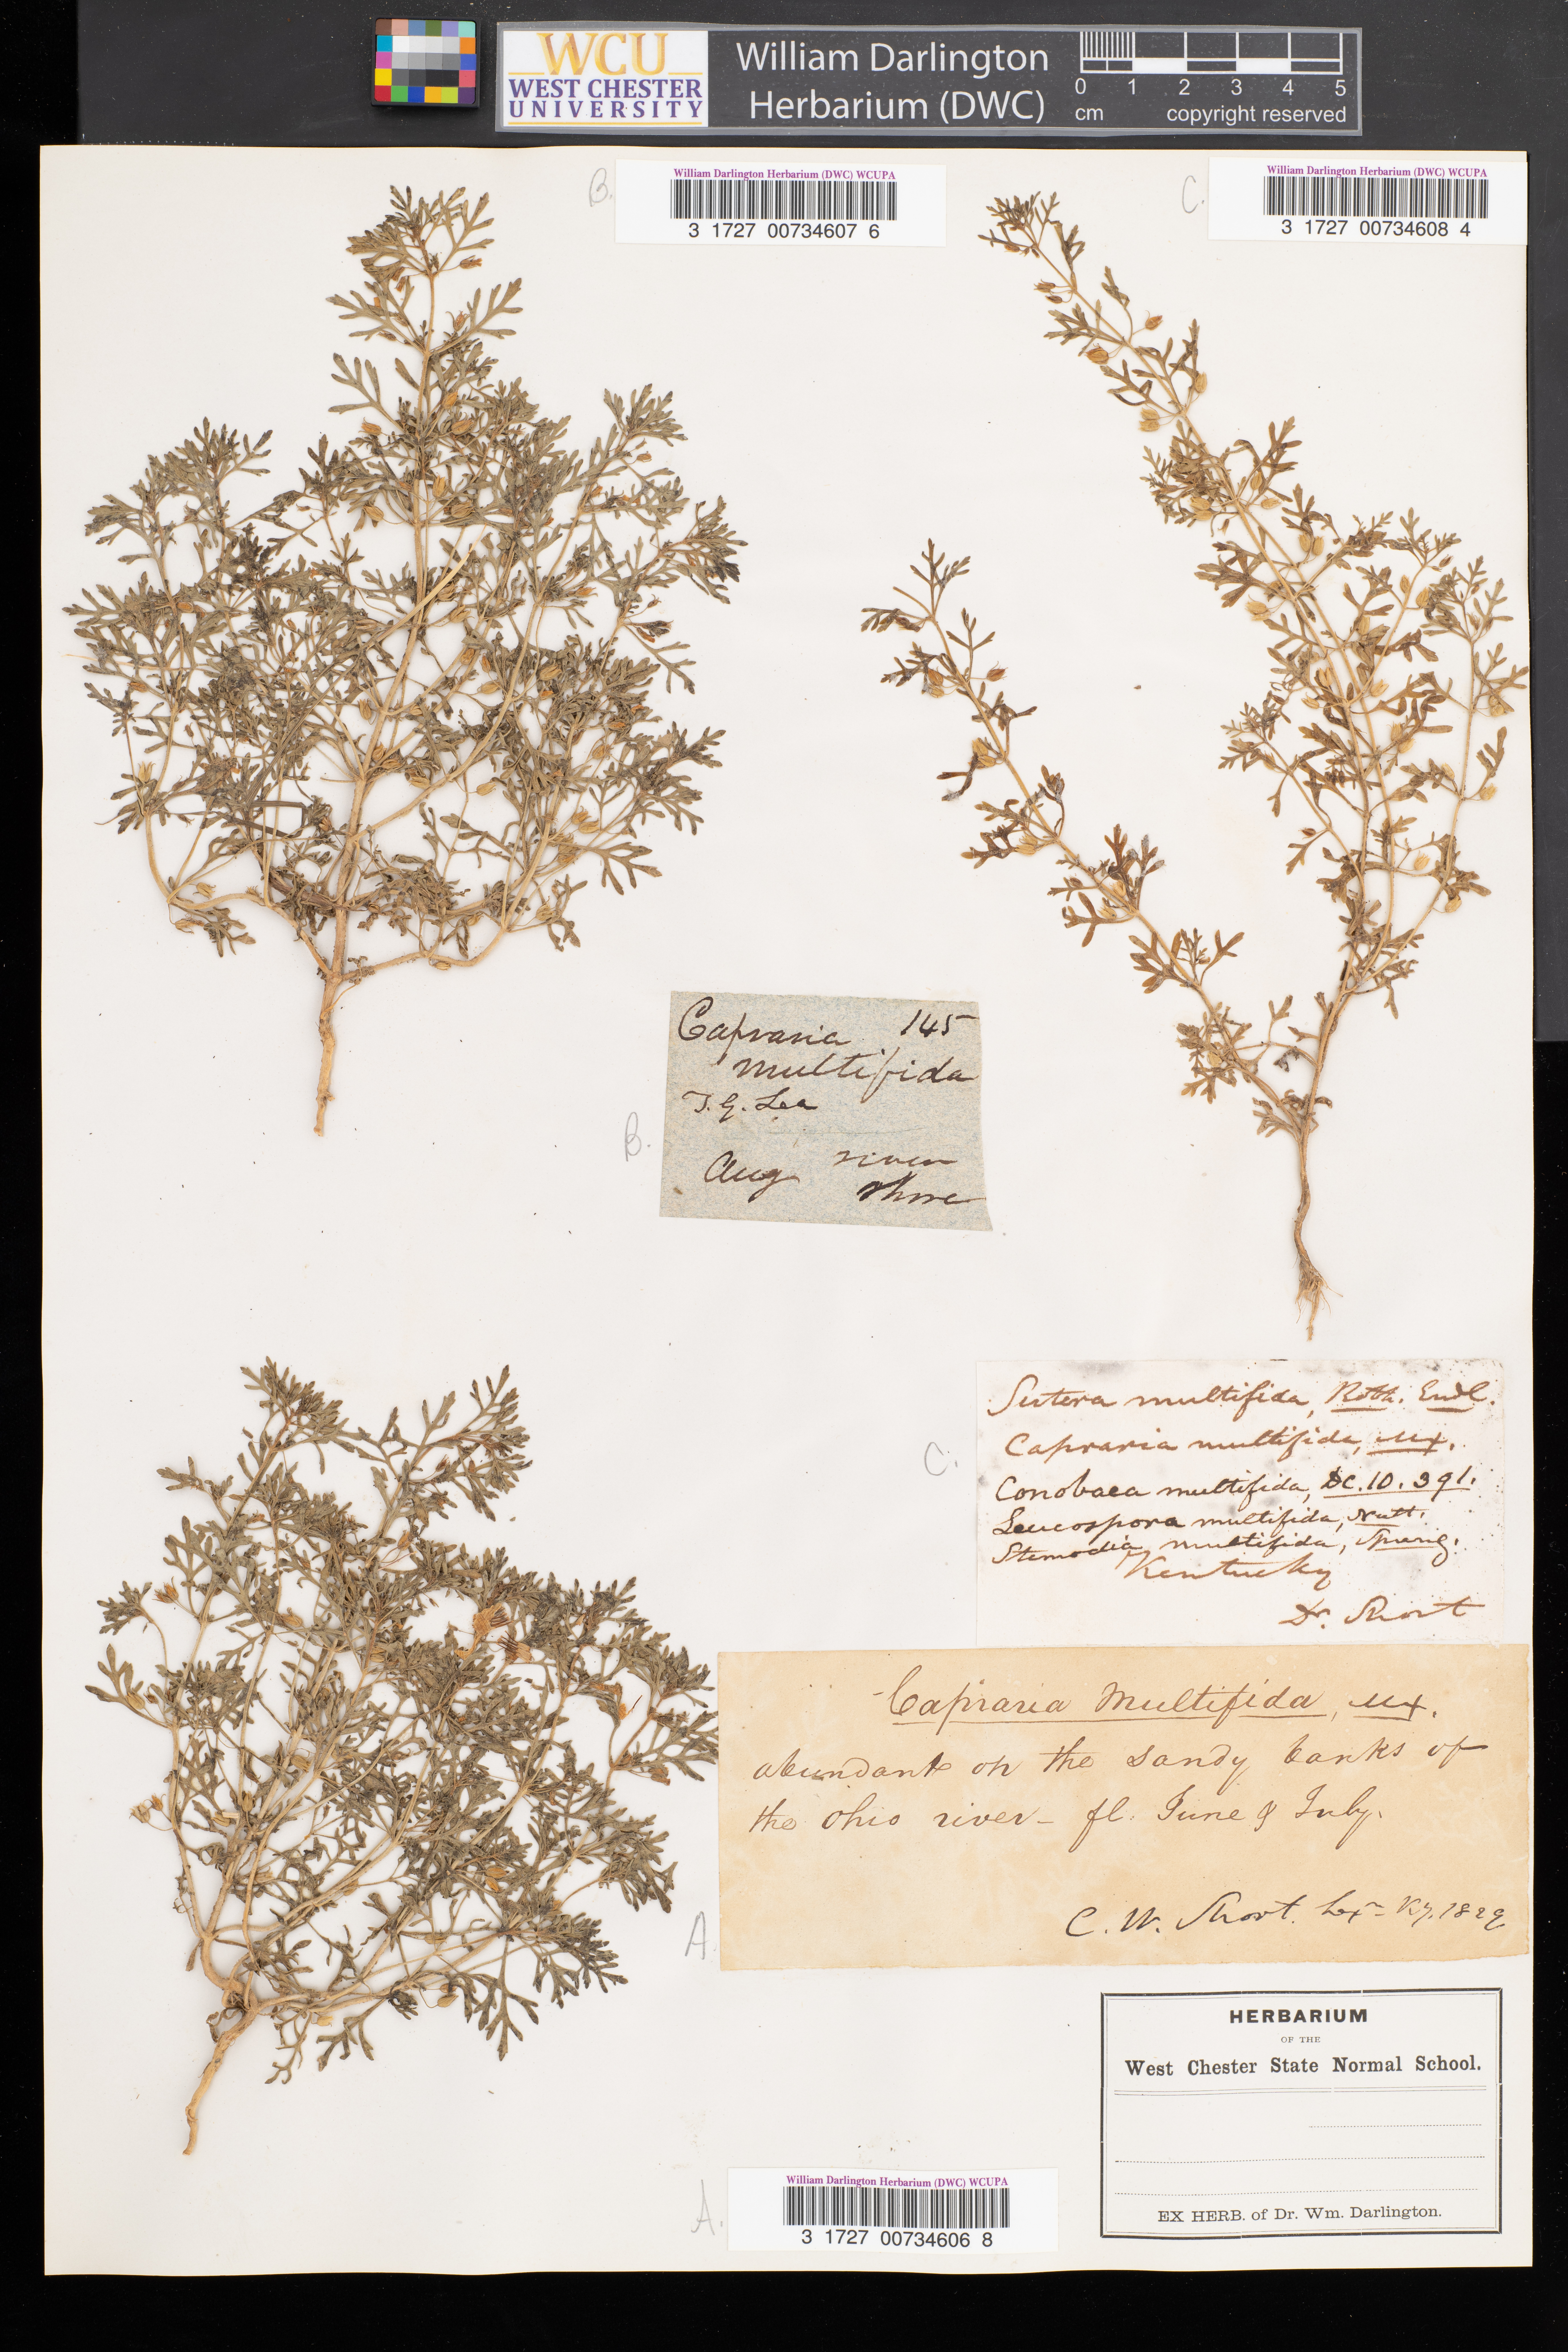 WCU
WEST CHESTER
UNIVERSITY
William Darlington
Herbarium (DWC)
0 1 2 3 4 5
cm copyright reserved
B.
William Darlington Herbarium (DWC) WCUPA
3 1727 00734607 6
C.
William Darlington Herbarium (DWC) WCUPA
3 1727 00734608 4
Capraria 145
multifida
T. G. Lea
B.
Aug river
shore
C.
Sutera multifida, Roth. Endl.
Capraria multifida, Mx.
Conobaea multifida, DC. 10. 391.
Leucospora multifida, Nutt.
Stemodia multifida, Spreng.
Kentucky
Dr. Short
Capraria Multifida, Mx.
abundant on the sandy banks of
the Ohio river - fl. June & July.
C. W. Short. Lexn Ky. 1829
A.
HERBARIUM
OF THE
West Chester State Normal School.
EX HERB. of Dr. Wm. Darlington.
A.
William Darlington Herbarium (DWC) WCUPA
3 1727 00734606 8